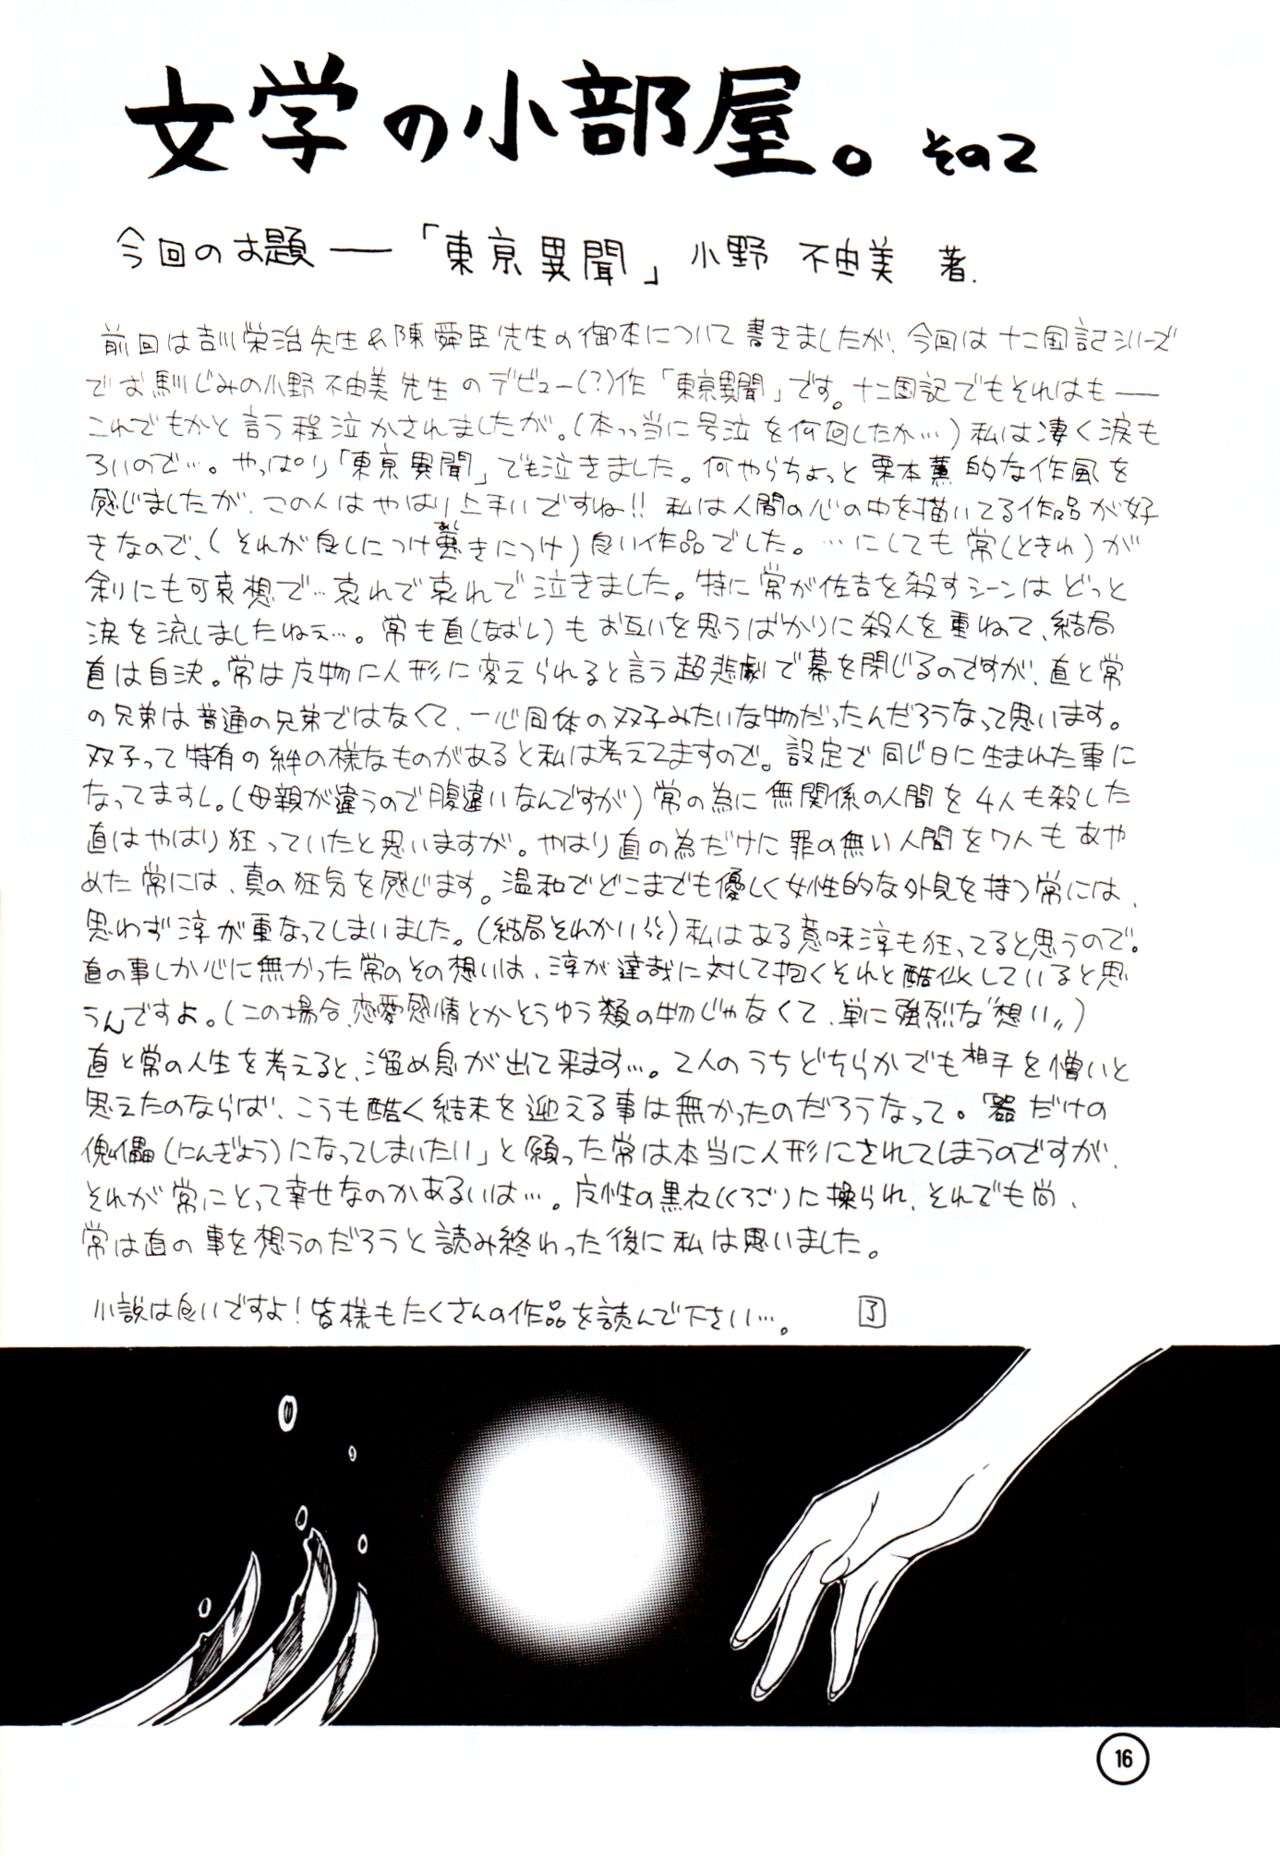 文学の小部屋。その2
今回のお題──「東亰異聞」小野 不由美 著.
前回は吉川栄治先生&陳舜臣先生の御本について書きましたが、今回は十二国記シリーズ
でお馴じみの小野不由美先生のデビュー(?)作「東亰異聞」です。十二国記でもそれはも──
これでもかと言う程泣かされましたが。(本っっ当に号泣を何回したか…)私は凄く涙も
ろいので…。やっぱり「東亰異聞」でも泣きました。何やらちょっと栗本薫的な作風を
感じましたが、この人はやはり上手いですね!! 私は人間の心の中を描いてる作品が好
きなので、(それが良しにつけ悪きにつけ)良い作品でした。…にしても常(ときわ)が
あし
余りにも可哀想で…哀れで哀れで泣きました。特に常が佐吉を殺すシーンはどっと
涙を流しましたねぇ…。常も直(なおし)もお互いを思うばかりに殺人を重ねて、結局
直は自決。常は左物に人形に変えられると言う超悲劇で幕を閉じるのですが、直と常
の兄弟は普通の兄弟ではなくて、一心同体の双子みたいな物だったんだろうなって思います。
双子って特有の絆の様なものがあると私は考えてますので。設定で同じ日に生まれた事に
なってますし。(母親が違うので腹違いなんですが)常の為に無関係の人間を4人も殺した
直はやはり狂っていたと思いますが。やはり直の為だけに罪の無い人間を7人もあや
めた常には、真の狂気を感じます。温和でどこまでも優しく女性的な外見を持つ常には、
思わず淳が重なってしまいました。(結局それかい)私はある意味淳も狂ってると思うので。
直の事しか心に無かった常のその想いは、淳が達哉に対して抱くそれと酷似していると思
うんですよ。(この場合、恋愛感情とかそうゆう類の物じゃなくて、単に強烈な〝想い〟)
直と常の人生を考えると、溜め息が出て来ます…。2人のうちどちらかでも相手を憎いと
思えたのならば、こうも酷く結末を迎える事は無かったのだろうなって。「器だけの
傀儡(にんぎょう)になってしまいたい」と願った常は本当に人形にされてしまうのですが、
それが常にとって幸せなのかあるいは…。左性の黒衣(くろご)に操られ、それでも尚、
常は直の事を想うのだろうと読み終わった後に私は思いました。
小説は良いですよ!皆様もたくさんの作品を読んで下さい…。 了
16